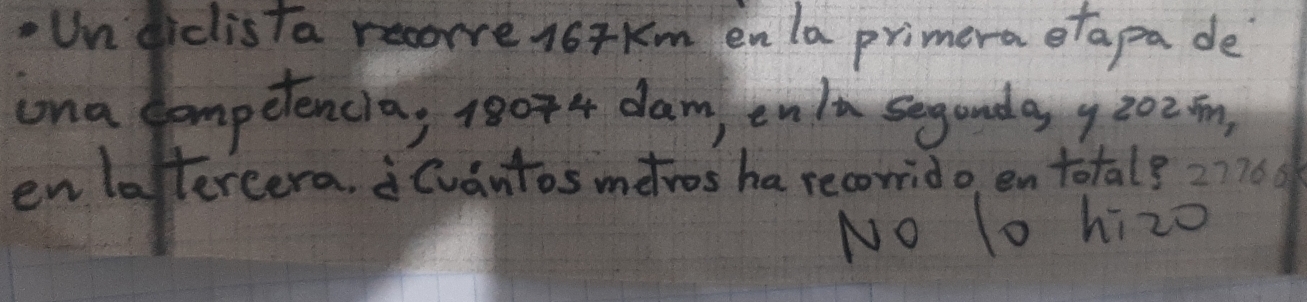 • Un ciclista recorre 167Km en la primera etapa de
una competencia; 18074 dam, en la segunda, y 202 m,
en la tercera. ¿Cuántos metros ha recorrido en total?
No lo hizo